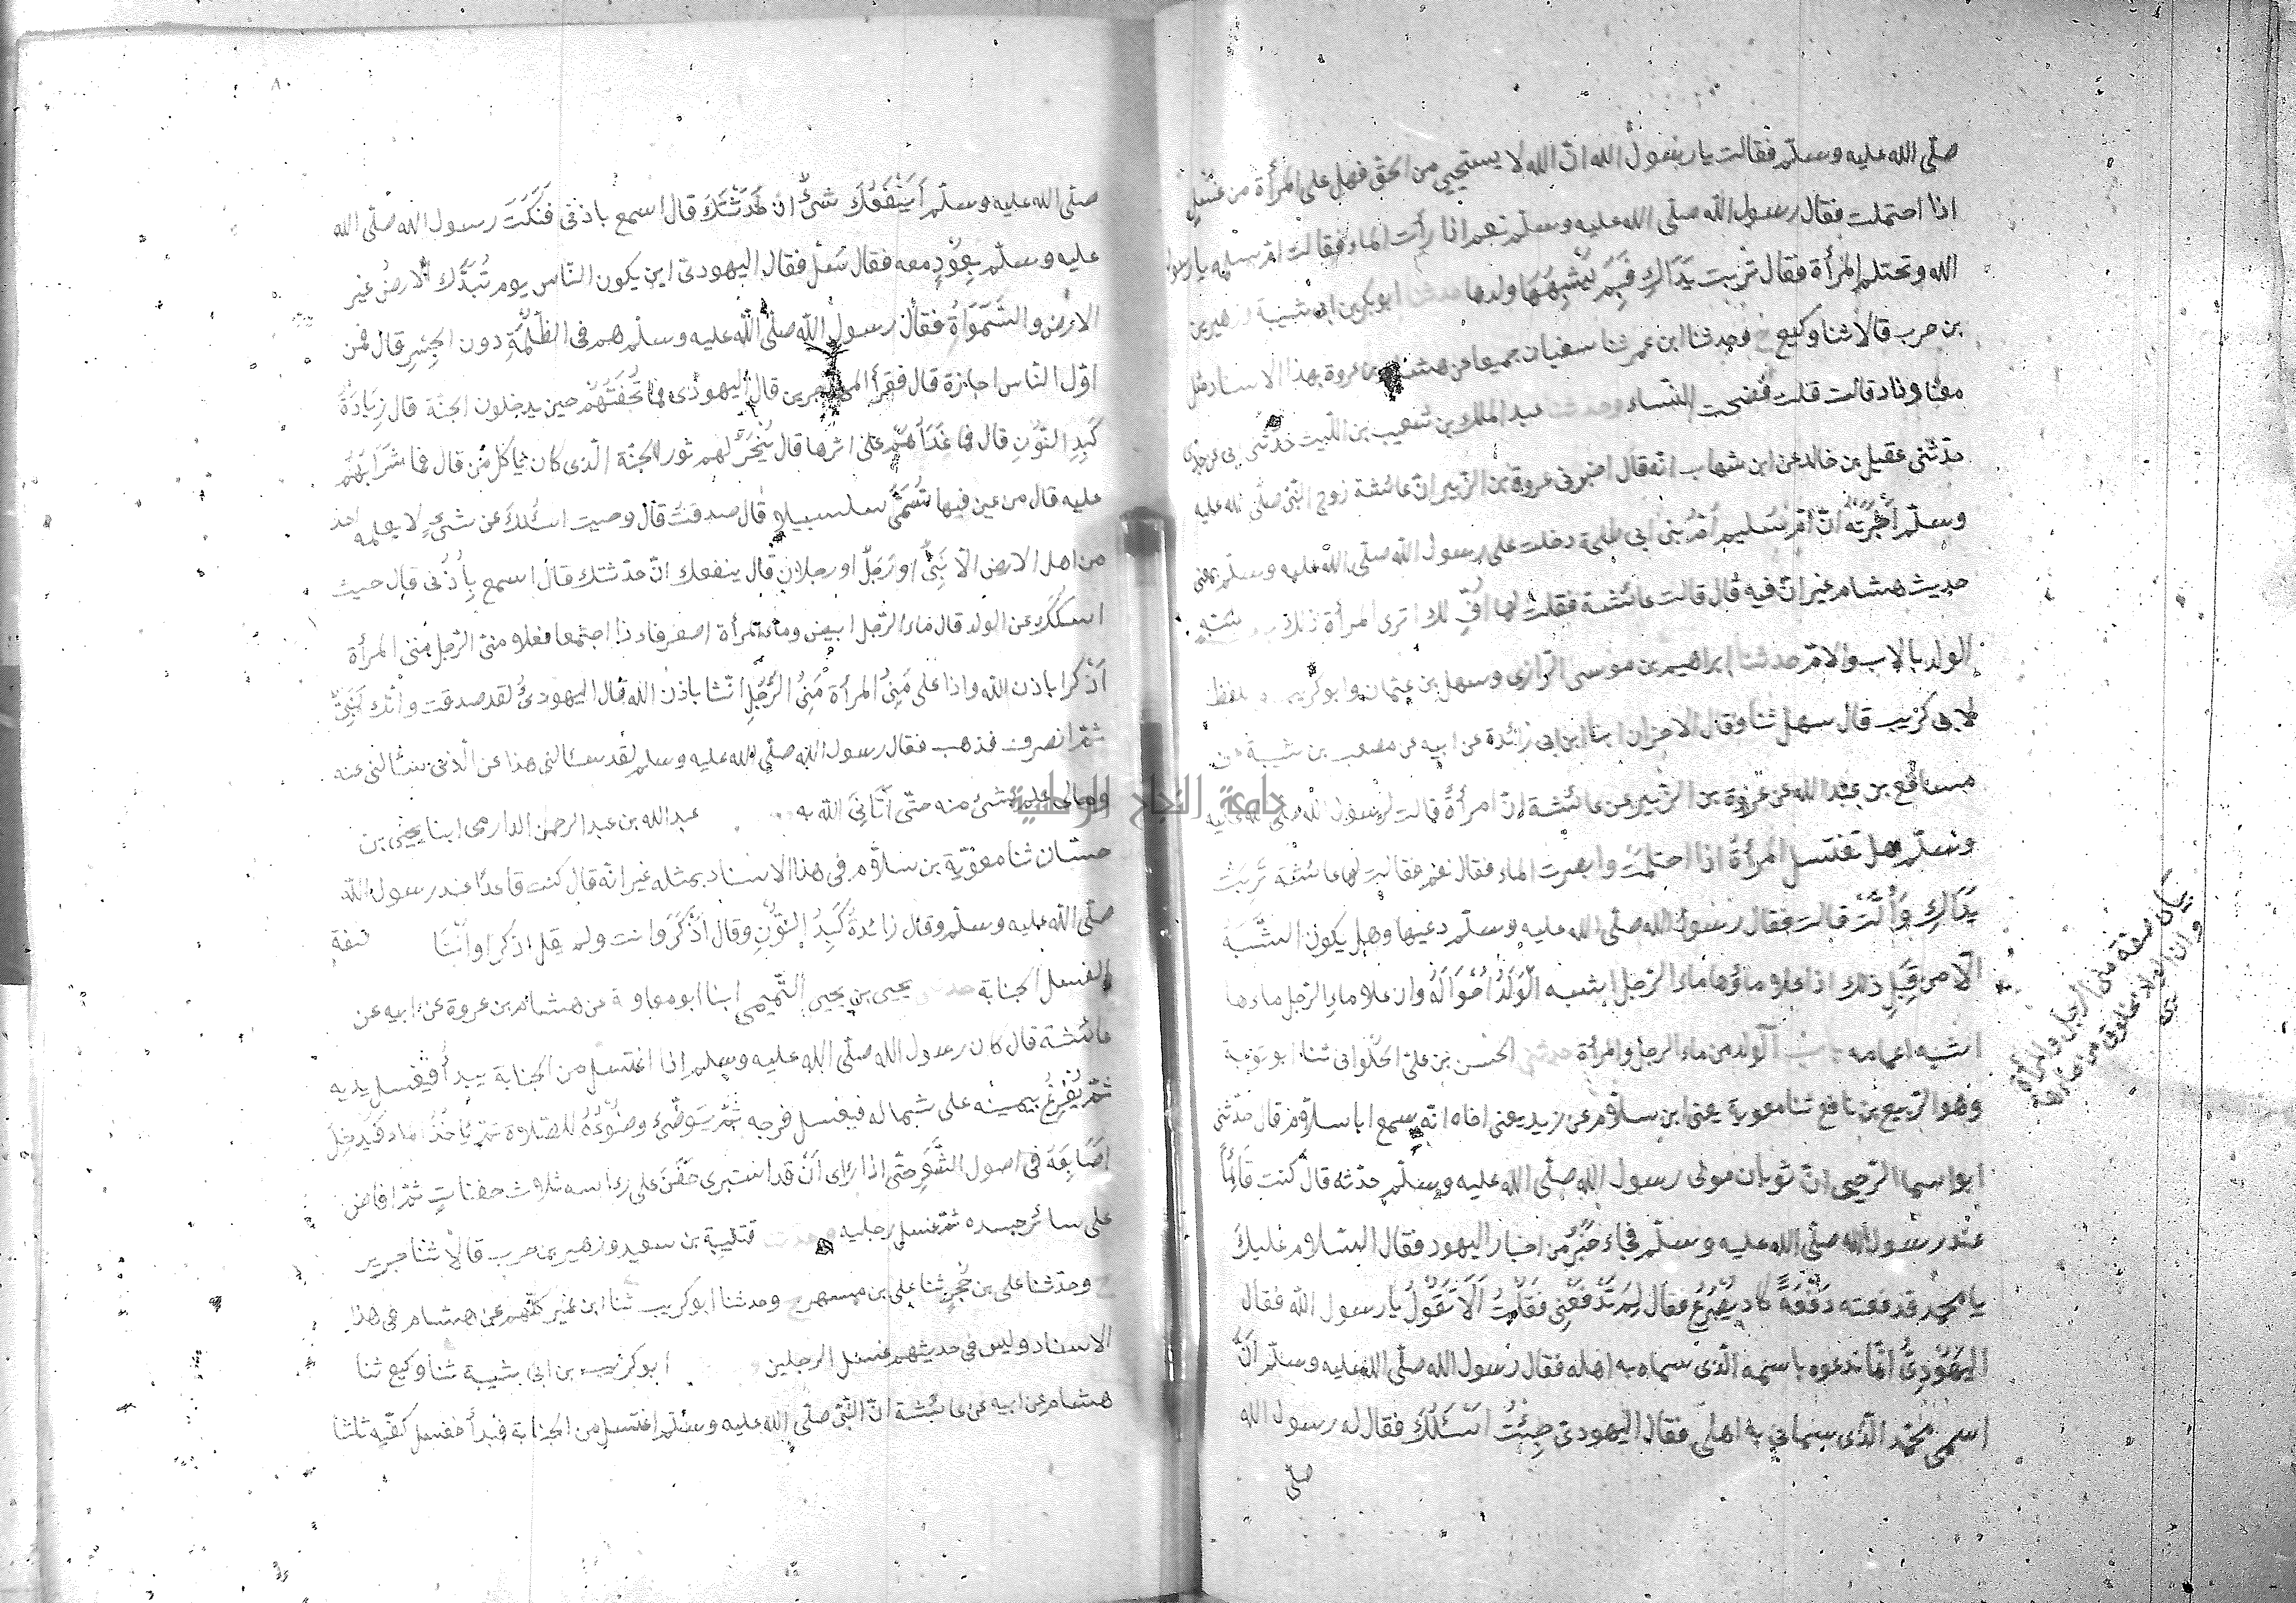 صلّى الله عليه وسلّم فقالت يا رسول الله انّ الله لا يستحيي من الحقّ فهل على المرأة من غسل
اذا احتملت فقال رسول الله صلّى الله عليه وسلّم نعم اذا رأت الماء فقالت امّ سلمه يا رسول
الله وتحتلم المرأة فقال تربت يَدَاكِ فَبِمَ يُشْبِهُهَا ولدها حدثنا ابوبكر بن ابى شيبة وزهير بن
بن حرب قالا ثنا وكيع ح وحدثنا ابن عمر ثنا سفيان جميعا عن هشام بن عروة بهذا الاسناد مثل
معناه وزاد قالت قلت فضحت النّساء وحدثنا عبد الملك بن شعيب بن اللّيث حدّثنى ابى عن جدّى
حدّثنى عقيل بن خالد عن ابن شهاب انّه قال اخبرنى عروة بن الزّبير انّ عائشة زوج النّبى صلّى الله عليه
وسلّم أَخْبَرَتْهُ انّ امّ سُليم امّ بنى ابى طلحة دخلت على رسول الله صلّى الله عليه وسلّم بمعنى
حديث هشام غير انّ فيه قال قالت عائشة فقلت لها افٍّ لك اترى المرأة ذلك
الولد بالاب والامّ حدثنا ابراهيم بن موسى الرّازى وسهل بن عثمان وابو كريب و لفظ
لابى كريب قال سهل ثنا وقال الاخران ابنا ابن ابى زائدة عن ابيه عن مصعب بن شيبة عن
مسافع بن عبد الله عن عُروة بن الزّبير عن عائشة انّ امرأةً قالت لرسول الله صلّى الله عليه
وسلّم هل تغتسل المرأةُ اذا احتلمتْ وابصرت الماء فقال نعم فقالت لها عائشة تَرِبَتْ
يَدَاكِ وَأُلَّتْ قالت فقال رسول الله صلّى الله عليه وسلّم دعيها وهل يكون الشّبَهُ
الّا من قِبَلِ ذلك اذا علا ماؤها ماء الرّجل اشبه الْوَلَدُ اَخْوَالَهُ وان علا ماء الرّجل ماءها
اشبه اعمامه باب الولد من ماء الرجل والمرأة حدثنى الحسن بن علىّ الحُلوانى ثنا ابو توبة
وهو الرّبيع بن نافع ثنا معوية يعنى ابن سلاّم عن زيد يعنى اخاه انّه سمع ابا سلاّم قال حدّثنى
ابو اسما الرّحبى انّ ثوبان مولى رسول الله صلّى الله عليه وسلّم حدّثه قال كنت قَائِماً
عند رسول الله صلّى الله عليه وسلّم فجاء حَبْرٌ من احبار اليهود فقال السّلام عليك
يا محمد فدفعته دَفْعَةً كاد يُصْرَعُ فقال لِمَ تَدْفَعُنِى فقلتُ اَلاَ تَقُولُ يا رسول الله فقال
اليَهُودِىُّ انّما ندعوه باسمه الّذى سماه به اهله فقال رسول الله صلّى الله عليه وسلّم انّ
اسمى محمّد الّذى سمانى به اهلى فقال اليهودىّ جِئْتُ اَسْئَلُكَ فقال له رسول الله
صلّى
بيان صفة منى الرجل والمرأة
وان الولد مخلوق من مائهما
صلّى الله عليه وسلّم اَيَنْفَعُكَ شئٌ ان حَدَّثْتُكَ قال اسمع باذنى فَنَكَتَ رسول الله صلّى الله
عليه وسلّم بِعُوْدٍ معه فقال سَلْ فقال اليهودىّ اين يكون النّاس يوم تُبَدَّل الارضُ غير
الارض والسَّمَوَاةُ فقال رسول الله صلّى الله عليه وسلّم هم فى الظّلْمَةِ دون الجِسْرِ قال فمن
اوّل النّاس اجازة قال فقرأ المهاجرين قال اليهودى فما تُحْفَتُهُمْ حين يدخلون الجنّة قال زِيَادَةُ
كَبِدِ النُّوْنِ قال فما غَدَاُهُمْ على اثرها قال يُنْحَرُ لهم ثور الجنّة الّذى كان يأكل من قال فما شَرَابُهُمْ
عليه قال من عين فيها تُسَمَّى سلسبيلا قال صدقت قال وجيت اسئلك عن شئٍ لا يعلمه احد
من اهل الارض الّا نَبِىٌّ او رَجُلٌ او رجلانِ قال ينفعك انْ حدّثتك قال اسمع بِأُذُنى قال جيت
اسئلك عن الولد قال ماء الرّجل ابيض وماء المرأة اصفر فاذا اجتمعا فعلا منىّ الرّجل منىّ المرأة
اَذْكرا باذن الله واذا على مَنِىُّ المرأة مَنِىَّ الرَّجُلِ انثا باذن الله قال اليهودىُّ لقد صدقت وانّك لَنَبِىٌّ
ثمّ انصرف فذهب فقال رسول الله صلّى الله عليه وسلم لقد سئالنى هذا عن الّذى سئالنى عنه
ومالى علم بشئ منه حتّى اَتَانِىَ الله به عبد الله بن عبد الرحمن الدارمى ابنا يحيى بن
حسّان ثنا معوّية بن سلاّم فى هذا الاسناد بمثله غير انّه قال كنت قاعدًا عند رسول الله
صلّى الله عليه وسلّم وقال زائدةُ كَبِدِ النُّوْنِ وقال اَذْكَرَ وانث ولم يقل اذكرا وانثا صفة
الغسل الجنابة حدثنا يحيى بن يحيى التّميمى ابنا ابو معاوية عن هشام بن عروة عن ابيه عن
عائشة قال كان رسول الله صلّى الله عليه وسلم اذا اغتسل من الجنابة يبدأُ فيغسل يديه
ثمّ يُفْرِغُ بيمينه على شماله فيغسل فرجه ثُمّ يَتَوَضّئ وضُوْءَهُ للصّلاة ثمّ يَأخُذُ الماء فَيدخِلُ
اَصَابِعَهُ فى اصول الشَّعْرِ حتّى اذا رَاى اَنْ قد استبرى حَفَنَ على رءاسه ثلاث حفناتٍ ثمّ افاض
على سائر جسده ثمّ غسل رجليه وحدثنا قتيبة بن سعيد وزهير بن حرب قالا ثنا جرير
ح وحدّثنا على بن حُجْرٍ ثنا على بن مسهر ح وحدثنا ابو كريب ثنا ابن نمير كلّهم عن هشام فى هذا
الاسناد وليس فى حديثهم غسل الرجلين ابو كريب بن ابى شيبة ثنا وكيع ثنا
هشام عن ابيه عن عائشة انّ النّبى صلّى الله عليه وسلّم اغتسل من الجنابة فبدأ فغسل كفّيه ثلثا
جامعة النجاح الوطنية